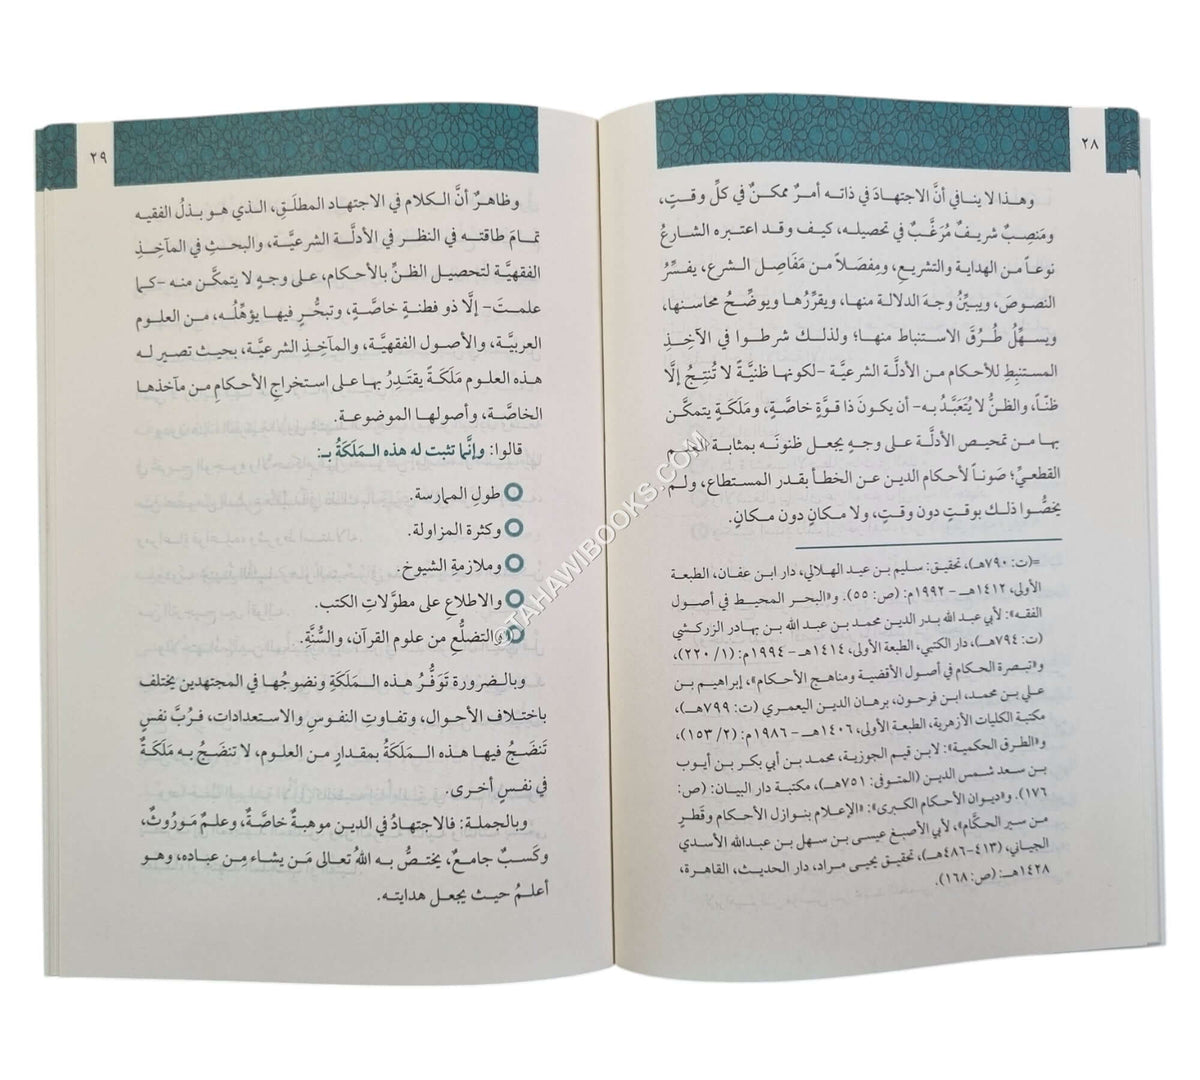 ٢٨
وهذا لا ينافي أنَّ الاجتهادَ في ذاته أمرٌ ممكنٌ في كلِّ وقتٍ،
ومَنصِبٌ شريفٌ مُرَغَّبٌ في تحصيله، كيف وقد اعتبره الشارعُ
نوعاً من الهداية والتشريع، ومِفصَلاً من مَفَاصِل الشرع، يفسِّرُ
النصوصَ، ويبيِّنُ وجهَ الدلالة منها، ويقرِّرُها ويوضِّحُ محاسنها،
ويسهِّلُ طُرُقَ الاستنباط منها؛ ولذلك شرطوا في الآخِذِ
المستنبِطِ للأحكام من الأدلَّة الشرعيَّة -لكونها ظنيَّة لا تُنتِجُ إلَّا
ظنّاً، والظنُّ لا يُتَعَبَّدُ به- أن يكونَ ذا قوَّةٍ خاصَّةٍ، ومَلَكَةٍ يتمكَّن
بها من تمحيص الأدلَّة على وجهٍ يجعل ظنونَه بمثابة العلم
القطعيِّ؛ صَوناً لأحكام الدين عن الخطأ بقدر المستطاع، ولم
يخصُّوا ذلك بوقتٍ دون وقتٍ، ولا مكانٍ دون مكانٍ.
=(ت: ٧٩٠هـ)، تحقيق: سليم بن عيد الهلالي، دار ابن عفان، الطبعة
الأولى، ١٤١٢هـ - ١٩٩٢م: (ص: ٥٥). و«البحر المحيط في أصول
الفقه»: لأبي عبد الله بدر الدين محمد بن عبد الله بن بهادر الزركشي
(ت: ٧٩٤هـ)، دار الكتبي، الطبعة الأولى، ١٤١٤هـ - ١٩٩٤م: (١/ ٢٢٠)،
و«تبصرة الحكام في أصول الأقضية ومناهج الأحكام»، إبراهيم بن
علي بن محمد، ابن فرحون، برهان الدين اليعمري (ت: ٧٩٩هـ)،
مكتبة الكليات الأزهرية، الطبعة الأولى، ١٤٠٦هـ - ١٩٨٦م: (٢/ ١٥٣)،
و«الطرق الحكمية»: لابن قيم الجوزية، محمد بن أبي بكر بن أيوب
بن سعد شمس الدين (المتوفى: ٧٥١هـ)، مكتبة دار البيان: (ص:
١٧٦). و«ديوان الأحكام الكبرى»: «الإعلام بنوازل الأحكام وقَطرٍ
من سير الحكَّام»، لأبي الأصبغ عيسى بن سهل بن عبدالله الأسدي
الجياني، (٤١٣-٤٨٦هـ)، تحقيق يحيى مراد، دار الحديث، القاهرة،
١٤٢٨هـ: (ص: ١٦٨).
٢٩
وظاهرٌ أنَّ الكلام في الاجتهاد المطلَقِ، الذي هو بذلُ الفقيه
تمامَ طاقته في النظر في الأدلَّة الشرعيَّة، والبحثِ في المآخِذِ
الفقهيَّة لتحصيل الظنِّ بالأحكام، على وجهٍ لا يتمكَّن منه -كما
علمتَ- إلَّا ذو فطنةٍ خاصَّةٍ، وتبحُّرٍ فيها يؤهِّلُه، من العلوم
العربيَّة، والأصول الفقهيَّة، والمآخِذِ الشرعيَّة، بحيث تصير له
هذه العلوم مَلَكَةً يقتَدِرُ بها على استخراج الأحكامِ من مآخذها
الخاصَّة، وأصولها الموضوعة.
قالوا: وإنَّما تثبت له هذه المَلَكَةُ بـ:
طولِ الممارسة.
وكثرة المزاولة.
وملازمةِ الشيوخ.
والاطلاعِ على مطوَّلاتِ الكتب.
والتضلُّعِ من علوم القرآن، والسُّنَّةِ.
وبالضرورة تَوَفُّرُ هذه المَلَكَةِ ونضوجُها في المجتهدين يختلف
باختلاف الأحوال، وتفاوتِ النفوس والاستعدادات، فرُبَّ نفسٍ
تَنضَجُ فيها هذه المَلَكَةُ بمقدارٍ من العلوم، لا تنضَجُ به مَلَكَةٌ
في نفسٍ أخرى.
وبالجملة: فالاجتهادُ في الدين موهبةٌ خاصَّةٌ، وعلمٌ مَورُوثٌ،
وكَسبٌ جامعٌ، يختصُّ به اللهُ تعالى مَن يشاء مِن عباده، وهو
أعلمُ حيث يجعل هدايته.
©TAHAWIBOOKS.COM